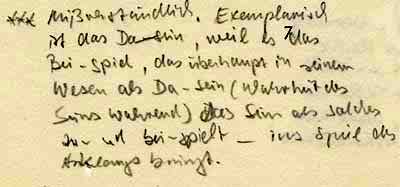 *** Mißverständlich. Exemplarisch
ist das Da-sein, weil es das
Bei-spiel, das überhaupt in seinem
Wesen als Da-sein (Wahrheit des
Seins wahrend) das Sein als solches
zu- und bei-spielt – ins Spiel des
Anklangs bringt.